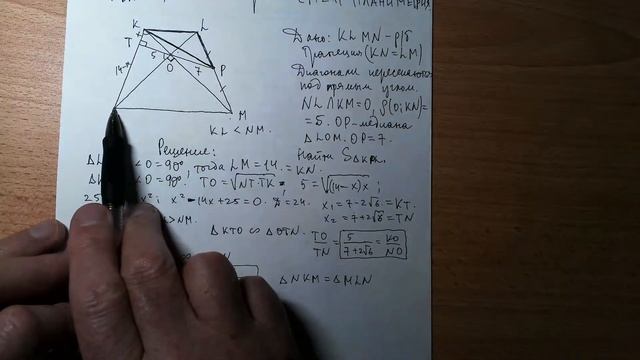 ПЛАНИМЕТРИЯ
K L
T x
14-x 5 O 7 P
M
KL < NM.
Дано: KLMN - р/б
Трапеция (KN = LM)
Диагонали пересекаются
под прямым углом.
NL ∩ KM = O, ρ(O; KN) =
= 5. OP - медиана
△LOM. OP = 7.
Найти S△
Решение:
∠O = 90°, тогда LM = 14 = KN.
∠O = 90°, TO = √NT·TK ; 5 = √(14-x)x ;
25 x²; x² - 14x + 25 = 0. = 24. x₁ = 7 - 2√6 = KT.
> NM. x₂ = 7 + 2√6 = TN
△KTO ∞ △OTN. TO/TN = 5/(7+2√6) = KO/NO
△NKM = △MLN